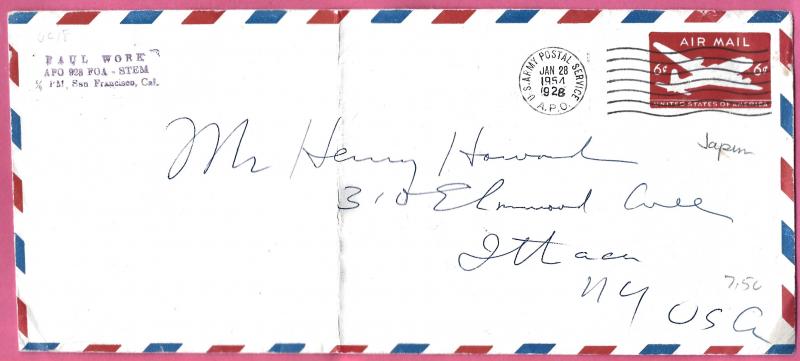 UC18
PAUL WORK
APO 928 FOA - STEM
% PM, San Francisco, Cal.
U.S. ARMY POSTAL SERVICE
JAN 28
1954
1928
A.P.O.
AIR MAIL
6¢ 6¢
UNITED STATES OF AMERICA
Japan
Mr Henry Howard
310 Elmwood Ave
Ithaca
NY USA
7.50